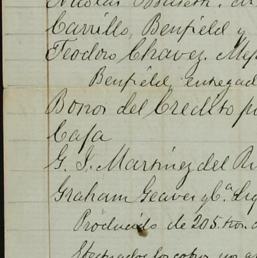 Nicolas
Carrillo, Benfield y
Teodoro Chavez. Mej
Benfield, entregad
Bonos del Credito p
Caja
G. J. Martinez del R
Graham Geaves y Cª. Liq
Producido de 205